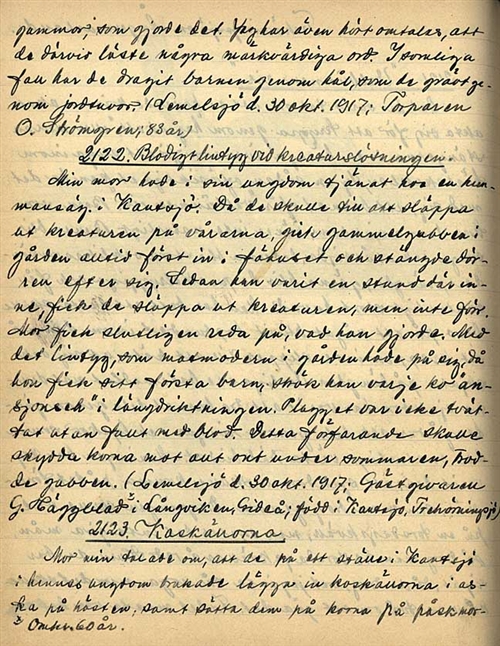 gummor, som gjorde det. Jag har även hört omtalas, att
de därvid läste några märkvärdiga ord. I somliga
fall har de dragit barnen genom hål, som de grävt ge-
nom jordtuvor. (Lemelsjö d. 30 okt. 1917; Torparen
O. Strömgren; 83 år)
2122. Blodigt lintyg vid kreaturslösningen.
Min mor hade i sin ungdom tjänat hos en hem-
mansäg. i Kantsjö. Då de skulle till att släppa
ut kreaturen på vårarna, gick gammelgubben i
gården alltid först in i fähuset och stängde dör-
ren efter sig. Sedan han varit en stund där in-
ne, fick de släppa ut kreaturen, men inte förr.
Mor fick slutligen reda på, vad han gjorde. Med
det lintyg, som matmodern i gården hade på sig, då
hon fick sitt första barn, strök han varje ko
i längdriktningen. Plagget var icke tvät-
tat utan fullt med blod. Detta förfarande skulle
skydda korna mot allt ont under sommaren, trod-
de gubben. (Lemelsjö d. 30 okt. 1917; Gästgivaren
G. Häggblad i Långviken, Gideå; född i Kantsjö, Trehörningsjö)
2123. Koskällorna.
Mor min talade om, att de på ett ställe i Kantsjö
i hennes ungdom brukade lägga in koskällorna i as-
ka på hösten samt sätta dem på korna på påskmor-
x Omkr. 60 år.